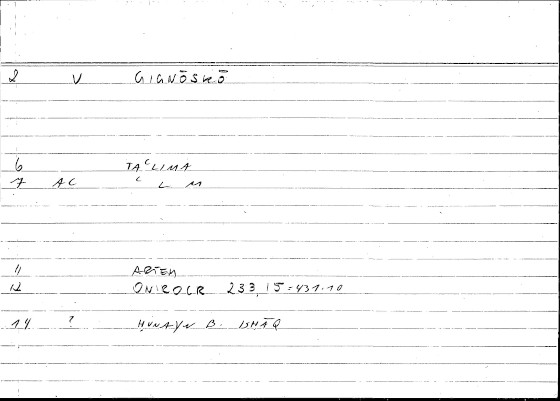 2 V GIGNŌSKŌ
6 TAᶜLIMA
7 AC ᶜ L M
11 ARTEM
12 ONIROCR 233,15=431.10
14 ? ḤUNAYN B. ISḤĀQ